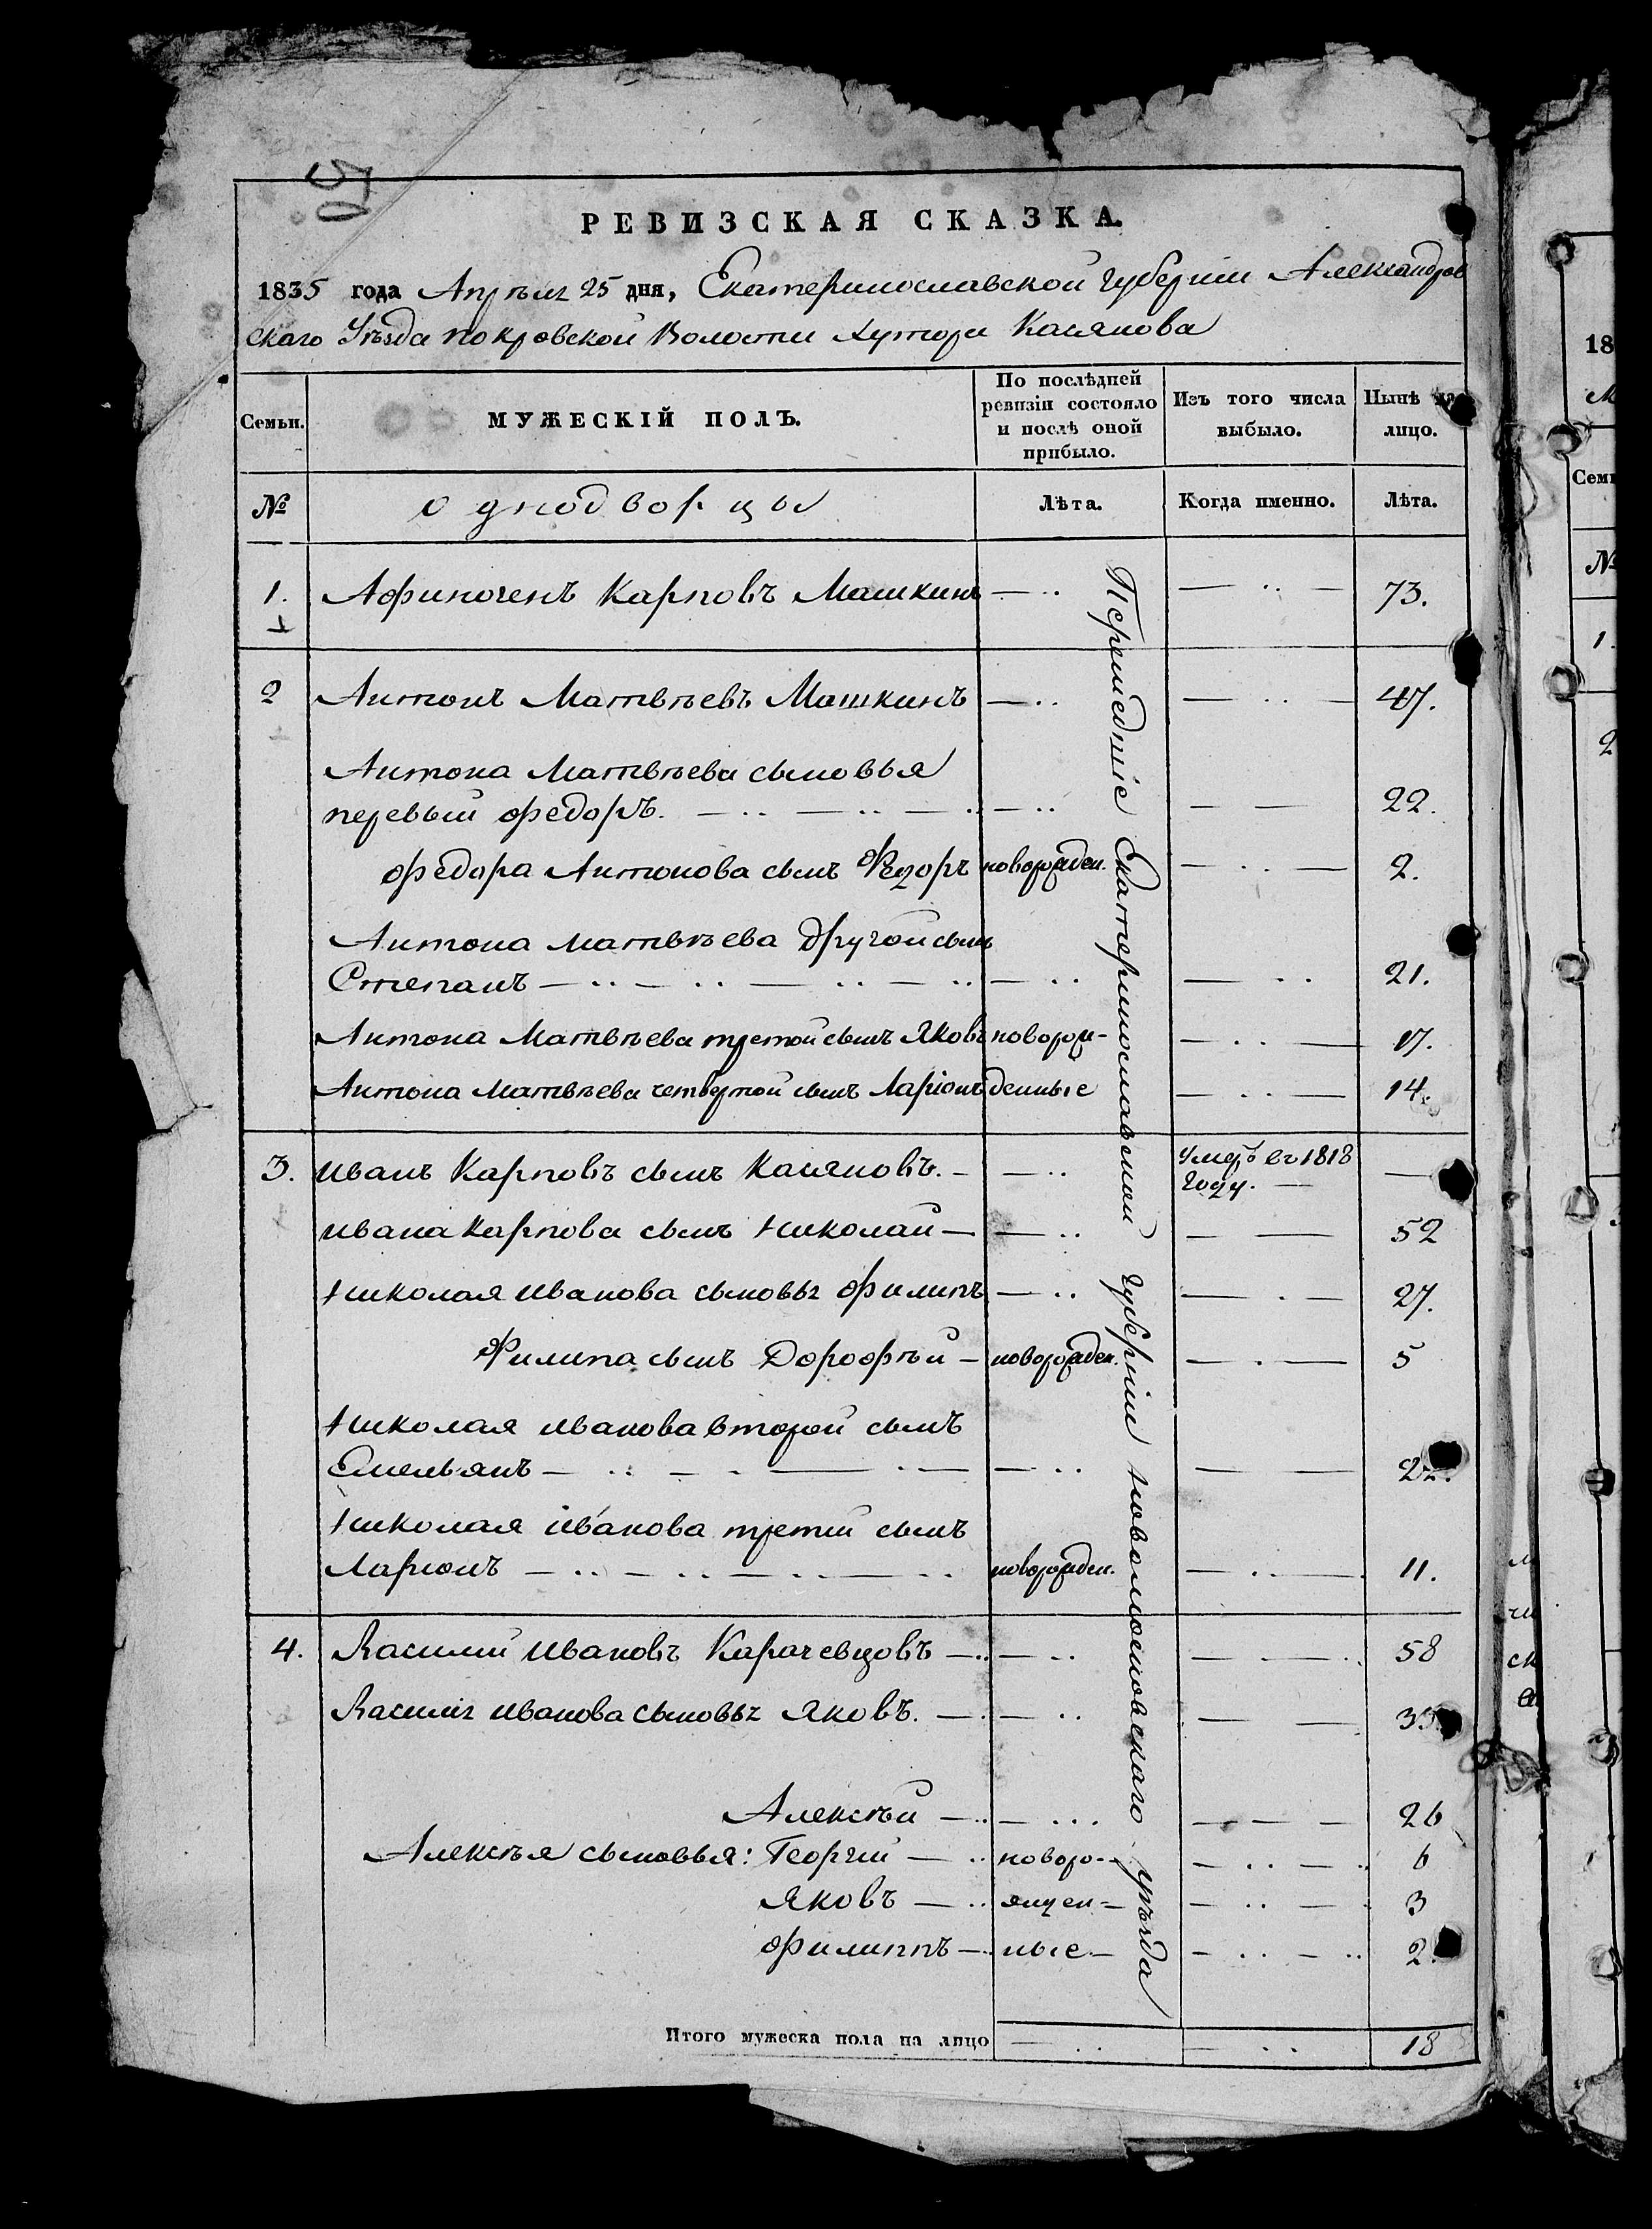 50
РЕВИЗСКАЯ СКАЗКА.
1835 года Апрѣля 25 дня, Екатеринославской губерніи Александров
скаго Уѣзда покровской Волости хутора Касянова
Семьи.
МУЖЕСКІЙ ПОЛЪ.
По послѣдней ревизіи состояло и послѣ оной прибыло.
Изъ того числа выбыло.
Нынѣ на лицо.
№ однодворцы Лѣта. Когда именно. Лѣта.
1. Афиногенъ Карповъ Машкинъ — .. — .. — 73.
2 Антонъ Матвѣевъ Машкинъ — .. — .. — 47.
Антона Матвѣева сыновья
первый федоръ. — .. — .. — .. — .. — — 22.
федора Антонова сынъ Федоръ новорожден. — .. — 2.
Антона матвѣева другой сынъ
Степанъ — .. — .. — .. — .. — .. — .. 21.
Антона Матвѣева третой сынъ Яковъ новорож- — .. — 17.
Антона Матвѣева четвертой сынъ Ларіонъ денные — .. — 14.
3. иванъ Карповъ сынъ Касяновъ. — — .. Умеръ въ 1818 —
году. —
ивана Карпова сынъ Николай — — .. — — 52
Николая иванова сыновья филипъ — .. — . — 27.
Филипа сынъ Дорофѣй — новорожден. — . — 5
Николая иванова второй сынъ
Емельянъ — .. — . — . — — .. — —
Николая иванова третій сынъ
Ларіонъ — .. — .. — .. — .. новорожден. — .. — 11.
4. Василій ивановъ Карачевцовъ — .. — .. — . — .. 58
Василія иванова сыновья Яковъ. — . — .. — —
Алексѣй — .. — ... — — — 26
Алексѣя сыновья: Георгій — .. новоро- — .. — .. 6
Яковъ — .. жден- — .. — . 3
филиппъ — . ные — — .. — .. 2.
Перешедшіе Екатеринославской губерніи новомосковскаго уѣзда
Итого мужеска пола на лицо — .. — .. 18
18
Семьи
№
1.
2